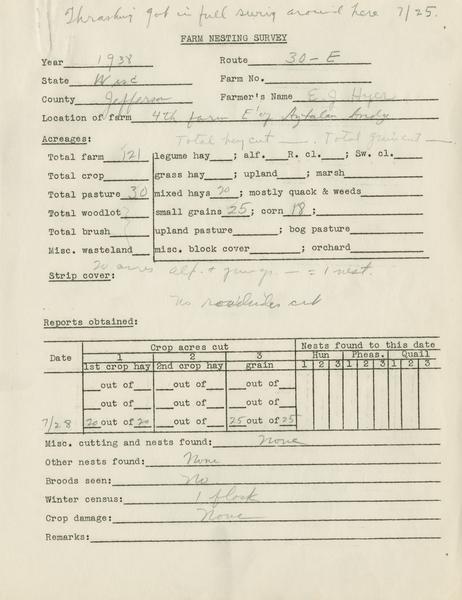 Thrashing got in full swing around here 7/25.
FARM NESTING SURVEY
Year 1938 Route 30-E
State Wisc Farm No.
County Jefferson Farmer's Name E J Hyer
Location of farm 4th farm E of Aztalan
Acreages: Total hay cut — Total grain cut —
Total farm 121 legume hay ; alf. R. cl. ; Sw. cl.
Total crop grass hay ; upland ; marsh
Total pasture 30 mixed hays 20 ; mostly quack & weeds
Total woodlot small grains 25 ; corn 18 ;
Total brush upland pasture ; bog pasture
Misc. wasteland misc. block cover ; orchard
20 acres alf. + — = 1 nest.
Strip cover:
No roadsides cut
Reports obtained:
Crop acres cut Nests found to this date
Date 1 2 3 Hun Pheas. Quail
1st crop hay 2nd crop hay grain 1 2 3 1 2 3 1 2 3
out of out of out of
out of out of out of
7/28 20 out of 20 out of 25 out of 25
Misc. cutting and nests found: None
Other nests found: None
Broods seen: No
Winter census: 1 flock
Crop damage: None
Remarks: